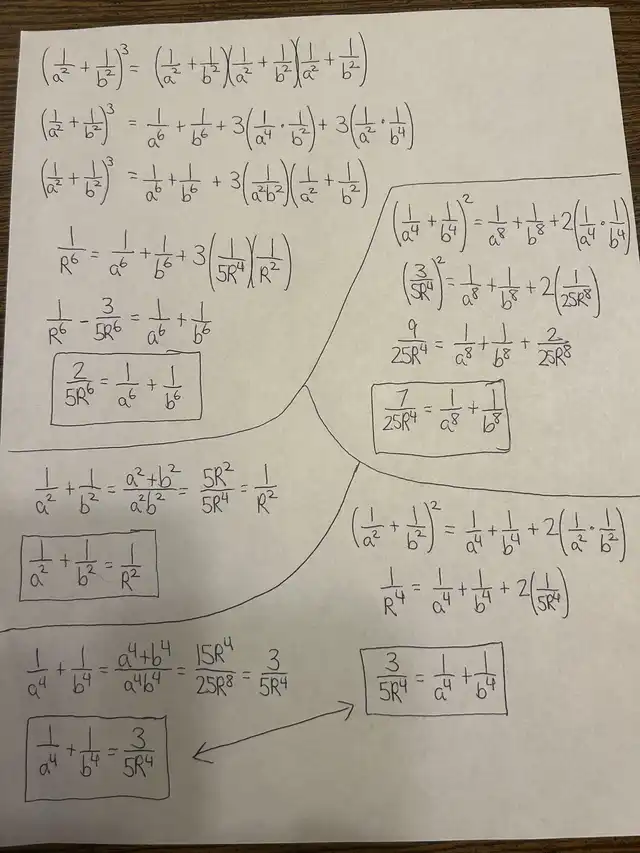 (1/a² + 1/b²)³ = (1/a² + 1/b²)(1/a² + 1/b²)(1/a² + 1/b²)
(1/a² + 1/b²)³ = 1/a⁶ + 1/b⁶ + 3(1/a⁴ · 1/b²) + 3(1/a² · 1/b⁴)
(1/a² + 1/b²)³ = 1/a⁶ + 1/b⁶ + 3(1/a²b²)(1/a² + 1/b²)
1/R⁶ = 1/a⁶ + 1/b⁶ + 3(1/5R⁴)(1/R²)
1/R⁶ - 3/5R⁶ = 1/a⁶ + 1/b⁶
2/5R⁶ = 1/a⁶ + 1/b⁶
(1/a⁴ + 1/b⁴)² = 1/a⁸ + 1/b⁸ + 2(1/a⁴ · 1/b⁴)
(3/5R⁴)² = 1/a⁸ + 1/b⁸ + 2(1/25R⁸)
9/25R⁴ = 1/a⁸ + 1/b⁸ + 2/25R⁸
7/25R⁴ = 1/a⁸ + 1/b⁸
1/a² + 1/b² = a²+b²/a²b² = 5R²/5R⁴ = 1/R²
1/a² + 1/b² = 1/R²
(1/a² + 1/b²)² = 1/a⁴ + 1/b⁴ + 2(1/a² · 1/b²)
1/R⁴ = 1/a⁴ + 1/b⁴ + 2(1/5R⁴)
3/5R⁴ = 1/a⁴ + 1/b⁴
1/a⁴ + 1/b⁴ = a⁴+b⁴/a⁴b⁴ = 15R⁴/25R⁸ = 3/5R⁴
1/a⁴ + 1/b⁴ = 3/5R⁴